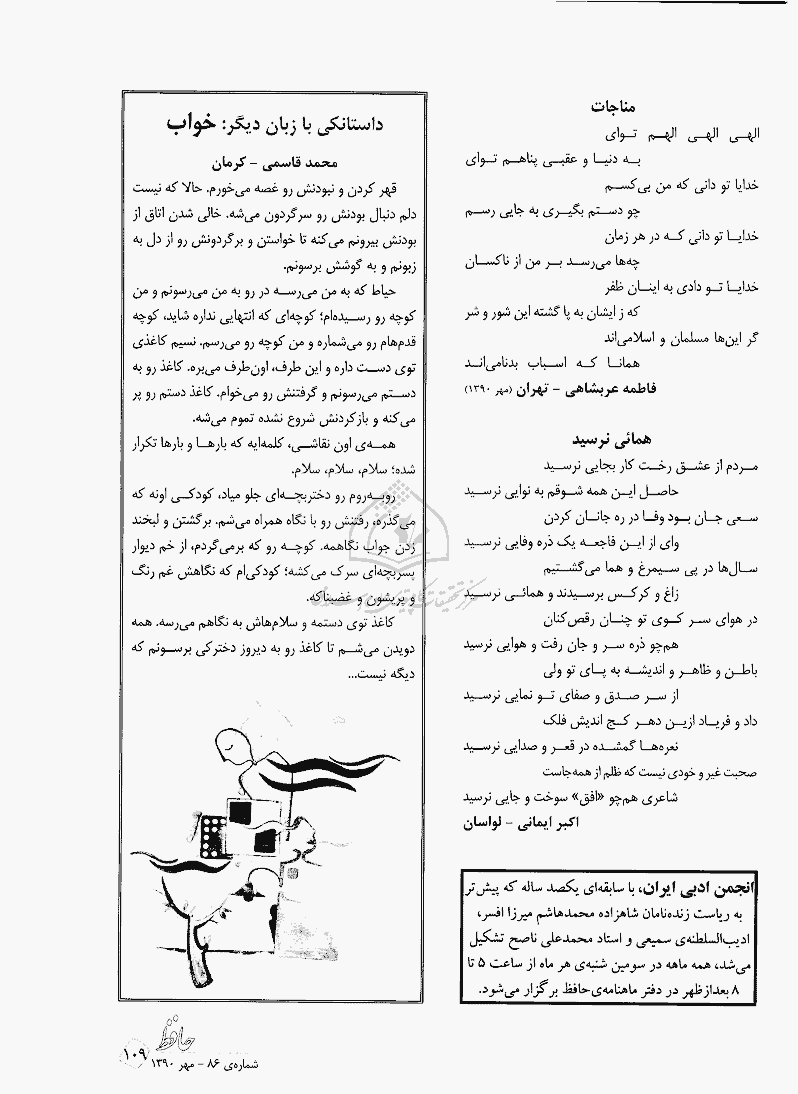 مناجات
الهی الهی الهم توای
به دنیا و عقبی پناهم توای
خدایا تو دانی که من بی‌کسم
چو دستم بگیری به جایی رسم
خدایا تو دانی که در هر زمان
چه‌ها می‌رسد بر من از ناکسان
خدایا تو دادی به اینان ظفر
که ز ایشان به پا گشته این شور و شر
گر این‌ها مسلمان و اسلامی‌اند
همانا که اسباب بدنامی‌اند
فاطمه عربشاهی - تهران (مهر ۱۳۹۰)
همائی نرسید
مردم از عشق رخت کار بجایی نرسید
حاصل این همه شوقم به نوایی نرسید
سعی جان بود وفا در ره جانان کردن
وای از این فاجعه یک ذره وفایی نرسید
سال‌ها در پی سیمرغ و هما می‌گشتیم
زاغ و کرکس برسیدند و همائی نرسید
در هوای سر کوی تو چنان رقص‌کنان
هم‌چو ذره سر و جان رفت و هوایی نرسید
باطن و ظاهر و اندیشه به پای تو ولی
از سر صدق و صفای تو نمایی نرسید
داد و فریاد ازین دهر کج اندیش فلک
نعره‌ها گمشده در قعر و صدایی نرسید
صحبت غیر و خودی نیست که ظلم از همه‌جاست
شاعری هم‌چو «افق» سوخت و جایی نرسید
اکبر ایمانی - لواسان
انجمن ادبی ایران، با سابقه‌ای یکصد ساله که پیش‌تر
به ریاست زنده‌نامان شاهزاده محمدهاشم میرزا افسر،
ادیب‌السلطنه‌ی سمیعی و استاد محمدعلی ناصح تشکیل
می‌شد، همه ماهه در سومین شنبه‌ی هر ماه از ساعت ۵ تا
۸ بعدازظهر در دفتر ماهنامه‌ی حافظ برگزار می‌شود.
داستانکی با زبان دیگر: خواب
محمد قاسمی - کرمان
قهر کردن و نبودنش رو غصه می‌خورم. حالا که نیست
دلم دنبال بودنش رو سرگردون می‌شه. خالی شدن اتاق از
بودنش بیرونم می‌کنه تا خواستن و برگردونش رو از دل به
زبونم و به گوشش برسونم.
حیاط که به من می‌رسه در رو به من می‌رسونم و من
کوچه رو رسیده‌ام؛ کوچه‌ای که انتهایی نداره شاید، کوچه
قدم‌هام رو می‌شماره و من کوچه رو می‌رسم. نسیم کاغذی
توی دست داره و این طرف، اون‌طرف می‌بره. کاغذ رو به
دستم می‌رسونم و گرفتنش رو می‌خوام. کاغذ دستم رو پر
می‌کنه و بازکردنش شروع نشده تموم می‌شه.
همه‌ی اون نقاشی، کلمه‌ایه که بارها و بارها تکرار
شده؛ سلام، سلام، سلام.
روبه‌روم رو دختربچه‌ای جلو میاد، کودکی اونه که
می‌گذره، رفتنش رو با نگاه همراه می‌شم. برگشتن و لبخند
زدن جواب نگاهمه. کوچه رو که برمی‌گردم، از خم دیوار
پسربچه‌ای سرک می‌کشه؛ کودکی‌ام که نگاهش غم رنگ
و پریشون و غضبناکه.
کاغذ توی دستمه و سلام‌هاش به نگاهم می‌رسه. همه
دویدن می‌شم تا کاغذ رو به دیروز دخترکی برسونم که
دیگه نیست...
حافظ
شماره‌ی ۸۶ - مهر ۱۳۹۰
۱۰۹